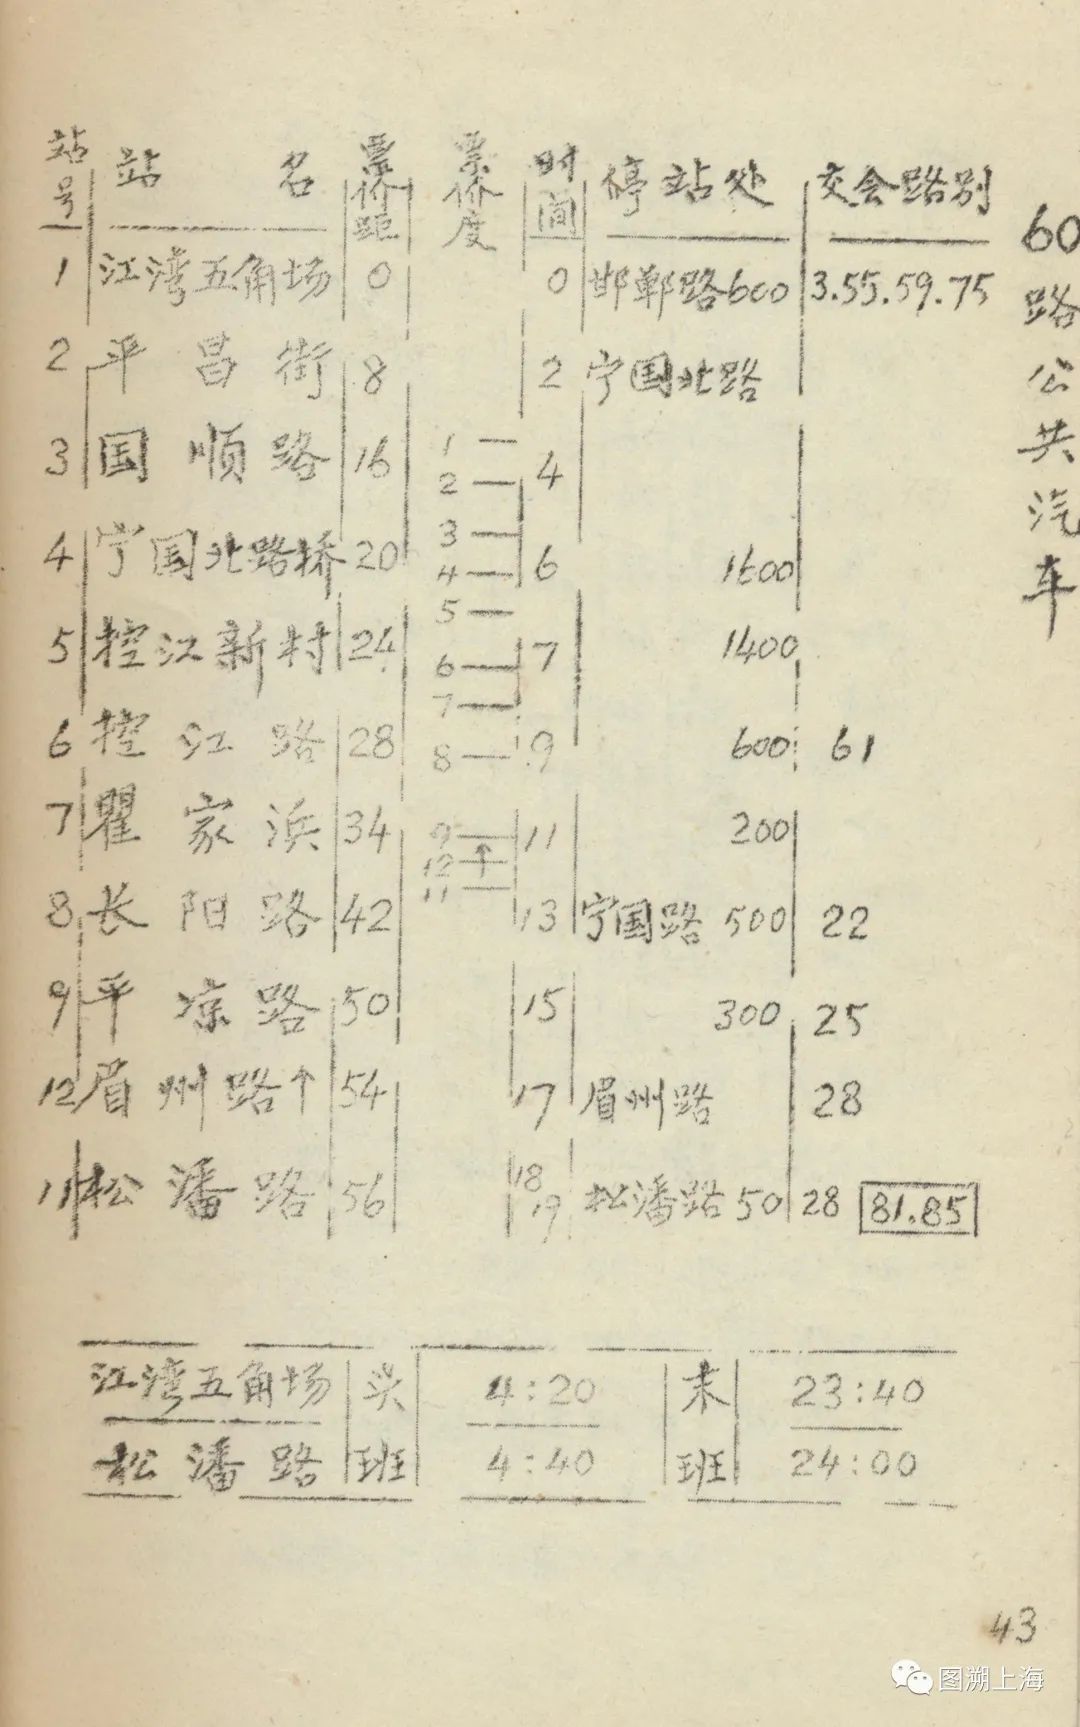 60路公共汽车
站号 站名 票价距 票价度 时间 停站处 交会路别
1 江湾五角场 0 0 邯郸路600 3.55.59.75
2 平昌街 8 2 宁国北路
3 国顺路 16 1 2 4
4 宁国北路桥 20 3 4 6 1600
5 控江新村 24 5 6 7 1400
6 控江路 28 7 8 9 600 61
7 瞿家浜 34 9 11 200
12 ↑
8 长阳路 42 11 13 宁国路 500 22
9 平凉路 50 15 300 25
12 眉州路↑ 54 17 眉州路 28
11 松潘路 56 18 19 松潘路 50 28 81.85
江湾五角场 头班 4:20 末班 23:40
松潘路 4:40 24:00
43
图溯上海